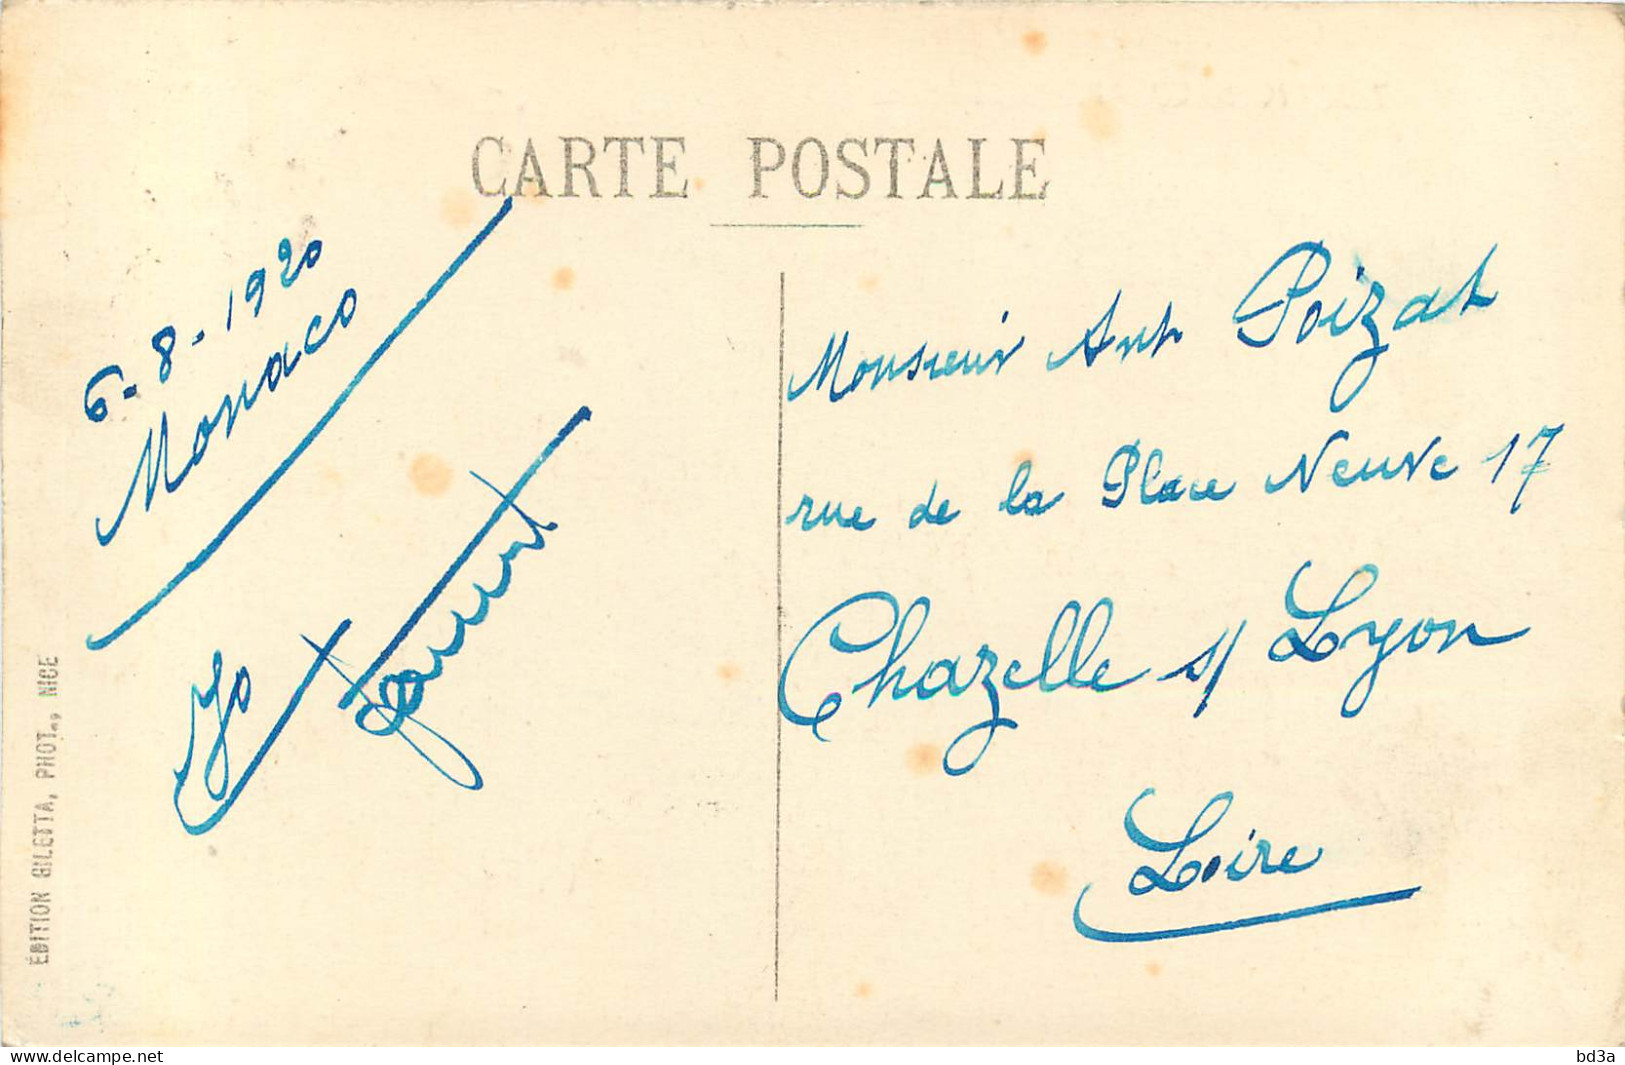 CARTE POSTALE
6-8-1920
Monaco
Monsieur Ant Poizat
rue de la Place Neuve 17
Chazelle s/ Lyon
Loire
ÉDITION GILETTA, PHOT., NICE
delcampe.net
bd3a